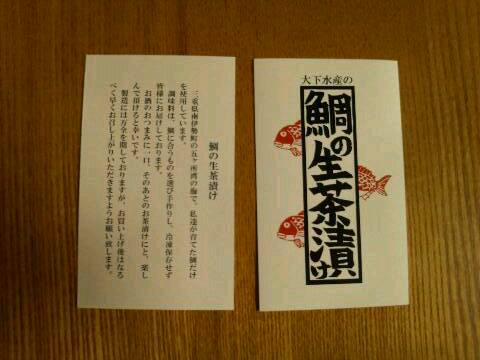 鯛の生茶漬け
三重県南伊勢町の五ヶ所湾の海で、私達が育てた鯛だけ
を使用しています。
調味料は、鯛に合うものを選び手作りし、冷凍保存せず
皆様にお届けしております。
お酒のおつまみに一口、そのあとのお茶漬けにと、楽し
んで頂けると幸いです。
製造には万全を期しておりますが、お買い上げ後はなる
べく早くお召し上がりいただきますようお願い致します。
大下水産の
鯛の生茶漬け